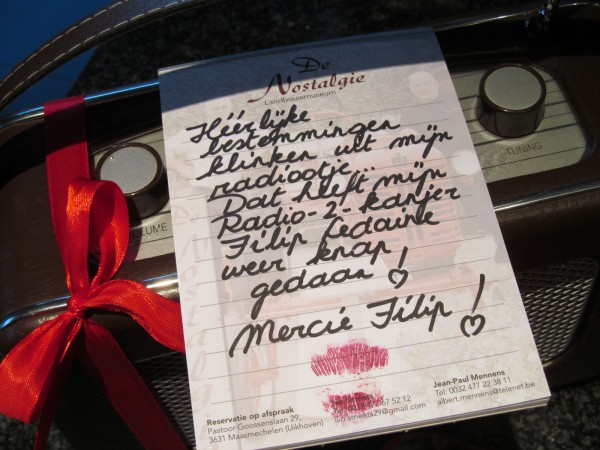 De
Nostalgie
Landbouwmuseum
Héérlijke
bestemmingen
klinken uit mijn
radiootje...
Dat heeft mijn
Radio-2-kanjer
Filip Fedaine
weer knap
gedaan! ♡
Mercie Filip! ♡
VOLUME
TUNING
Reservatie op afspraak
Pastoor Goossenslaan 29,
3631 Maasmechelen (Uikhoven)
57 52 12
smeets29@gmail.com
Jean-Paul Mennens
Tel: 0032 477 22 38 11
albert.mennens@telenet.be